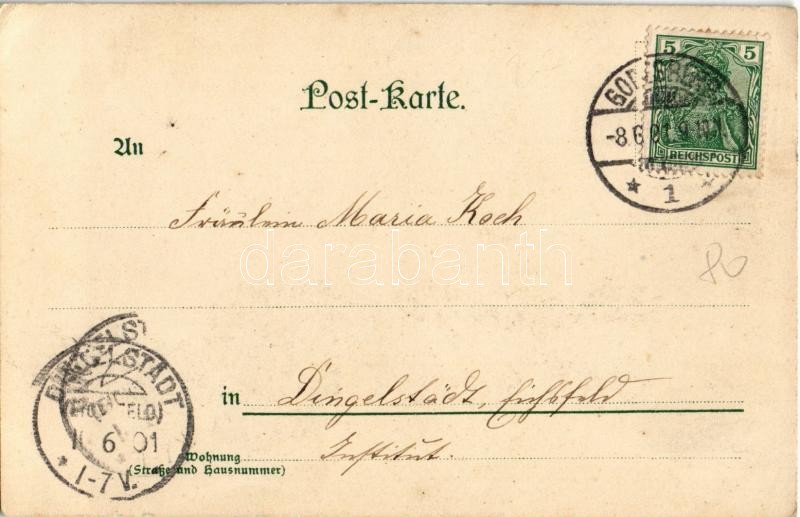 Post-Karte.
5 5
REICHSPOST
-8.6.01.9-10
* 1 *
An
Fräulein Maria Koch
darabanth
80
in Dingelstädt, Eichsfeld
Institut.
Wohnung
(Straße und Hausnummer)
DINGELSTÄDT
6 01
* 1-7V.